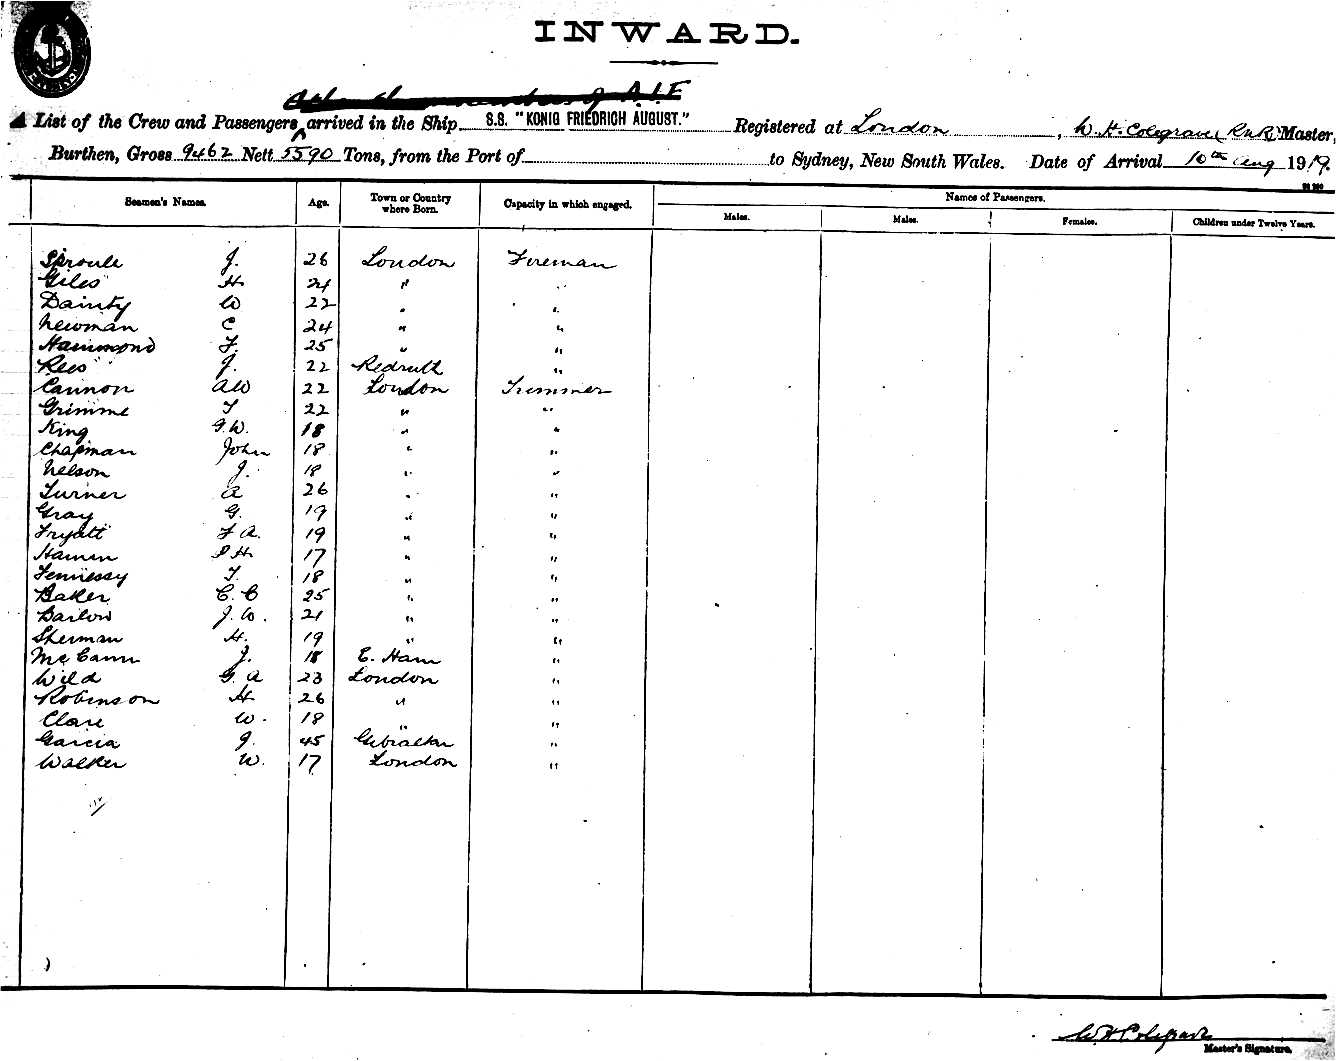 INWARD.
A.I.F
List of the Crew and Passengers arrived in the Ship S.S. "KONIG FRIEDRICH AUGUST." Registered at London, W. H. Colegrave R.N.R. Master,
Burthen, Gross 9462 Nett 5590 Tons, from the Port of to Sydney, New South Wales. Date of Arrival 10th Aug 1919.
Seamen's Names. Age. Town or Country where Born. Capacity in which engaged. Names of Passengers.
Males. Males. Females. Children under Twelve Years.
Sproule J. 26 London Fireman
Giles H 24 " "
Dainty W 22 " "
Newman C 24 " "
Hammond F. 25 " "
Rees J. 22 Redruth "
Cannon AW 22 London Trimmer
Grimme T 22 " "
King G.W. 18 " "
Chapman John 18 " "
Nelson J. 18 " "
Turner A 26 " "
Gray G. 19 " "
Fryatt F A. 19 " "
H. 17 " "
Fennessy T. 18 " "
Baker C. C 25 " "
Barlow J. W. 21 " "
Sherman H. 19 " "
McCann J. 18 E. Ham "
Wild G. A 23 London "
Robinson H 26 " "
Clare W. 18 " "
Garcia J. 45 Gibraltar "
Walker W. 17 London "
W H Colegrave
Master's Signature.